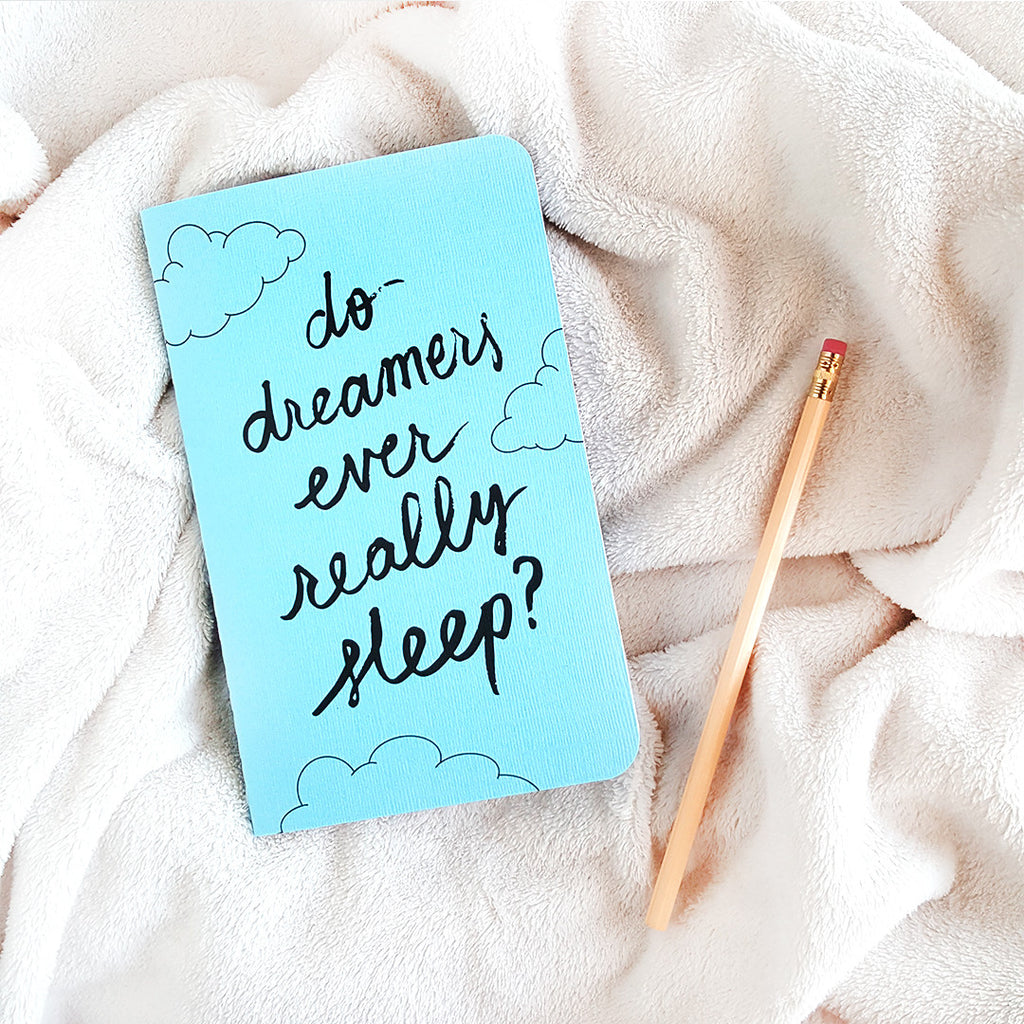 do
dreamers
ever
really
sleep?